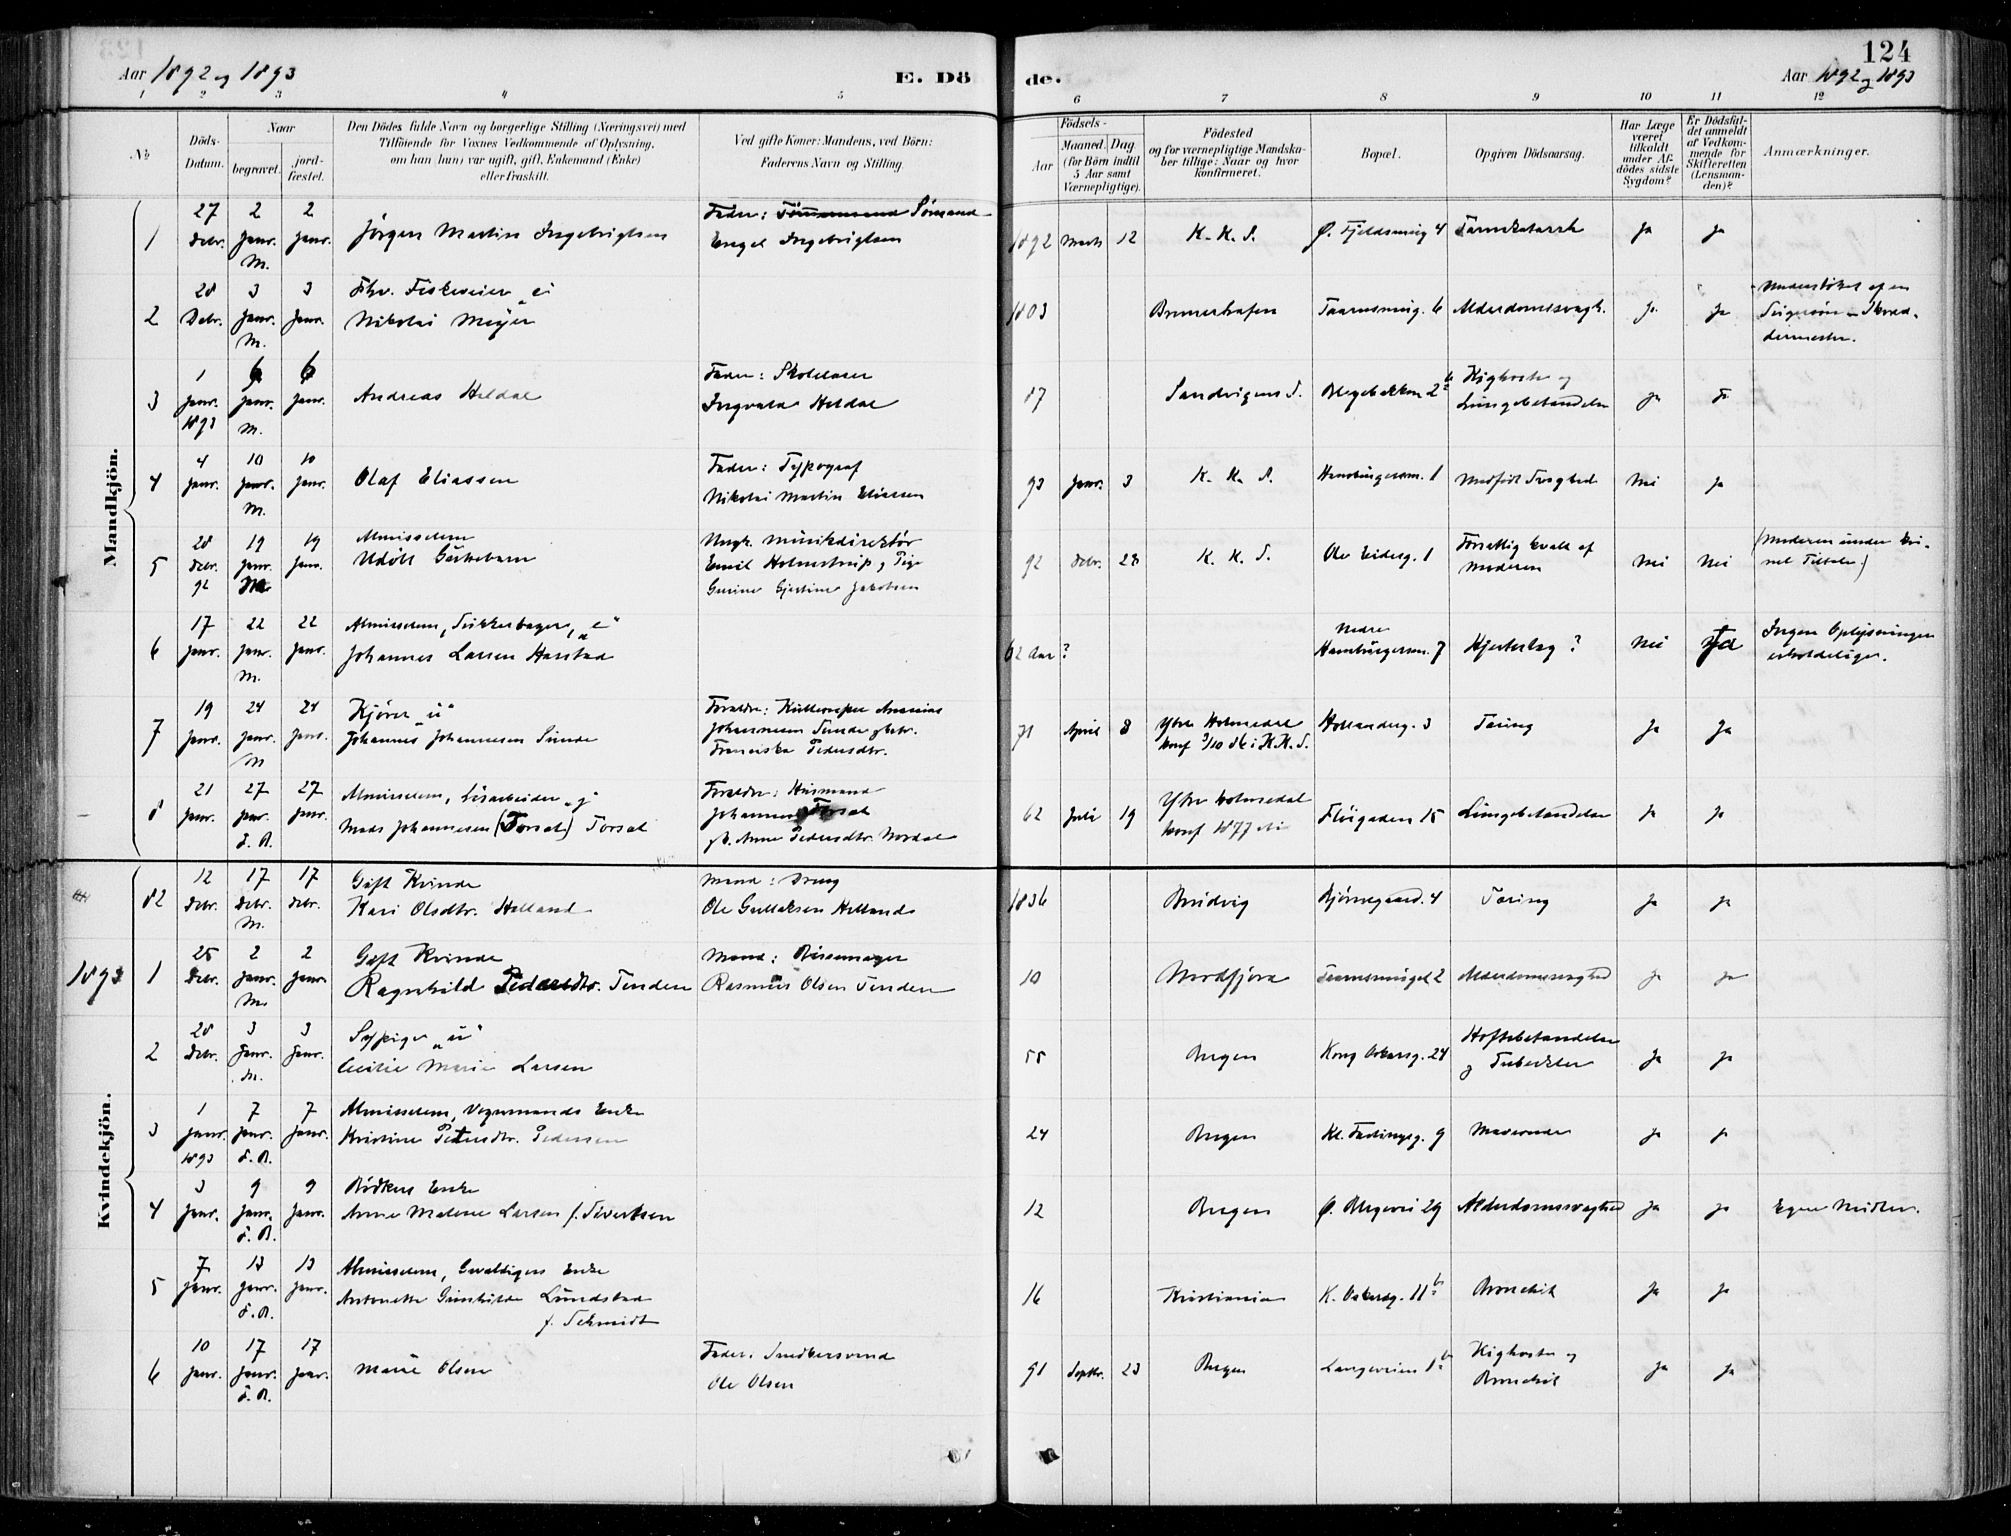 Aar 1892 og 1893
E. Dö
de.
124
Aar 1892 og 1893
1 2 3 4 5 6 7 8 9 10 11 12
No
Döds-Datum.
Naar
begravet.
jord-fæstet.
Den Dödes fulde Navn og borgerlige Stilling (Næringsvei) med
Tilföiende for Voxnes Vedkommende af Oplysning,
om han (hun) var ugift, gift, Enkemand (Enke)
eller fraskilt.
Ved gifte Koner: Mandens, ved Börn:
Faderens Navn og Stilling.
Födsels-
Aar
Maaned Dag
(for Börn indtil
5 Aar samt
Værnepligtige).
Födested
og for værnepligtige Mandska-
ber tillige: Naar og hvor
konfirmeret.
Bopæl.
Opgiven Dödsaarsag.
Har Læge
været
tilkaldt
under Af-
dödes sidste
Sygdom?
Er Dödsfal-
det anmeldt
af Vedkom-
mende for
Skifteretten
(Lensman-
den)?
Anmærkninger.
Mandkjön.
1 27 Debr. 2 Janr. M. 2 Janr. Jörgen Martin Ingebrigtsen Fader: Sömand Engel Ingebrigtsen 1892 Marts 12 K. K. S. Ø. Fjeldsmug 4 Tarmkatarrh Ja Ja
2 28 Debr. 3 Janr. M. 3 Janr. Fhv. Fiskeveier "e" Nikolai Meyer 1803 Bremerhafen Taarnsmug. 6 Alderdomssvagh. Ja Ja Understöttet af en
3 1 Janr. 1893 6 Janr. M. 6 Janr. Andreas Heldal Fader: Skolelærer Ingvald Heldal 87 Sandvigens S. Blegebakken 2b Kighoste og Lungebetændelse Ja Ja
4 4 Janr. 10 Janr. M. 10 Janr. Olaf Eliassen Fader: Typograf Nikolai Martin Eliassen 93 Janr. 3 K. K. S. Hamburgersm. 1 Medfödt Svaghed Nei Ja
5 28 Debr. 92 19 Janr. M 19 Janr. Almisselem Udöbt Guttebarn Ungk. Musikdirektör Emil Holmstrup, Pige Gurine Gjertine Jakobsen 92 Debr. 28 K. K. S. Ole Eidesg. 1 Forsætlig kvalt af Moderen Nei Nei (Moderen under Krimi-nel Tiltale.)
6 17 Janr. 22 Janr. M. 22 Janr. Almisselem, Sukkerbager, "e" Johannes Larsen Harstad 62 Aar? Nedre Hamburgersm. 7 Hjerteslag? Nei Ja Ingen Oplysninger erholdelige.
7 19 Janr. 24 Janr. M 24 Janr. Kjörer "u" Johannes Johannesen Sunde Forældre: Ananias Johannesen Sunde Franciska Pedersdtr. 71 April 8 Ytre Holmedal konf 3/10 86 i K. K. S. Hollanderg. 3 Tæring Ja Ja
8 21 Janr. 27 Janr. S. B. 27 Janr. Almisselem, Lösarbeider "g" Mads Johannesen (Torsal) Torsal Forældre: Husmand Johannes Torsal Anne Pedersdtr. Nordal 62 Juli 19 Ytre Holmedal konf 1877 Flöigaden 15 Lungebetændelse Ja Ja
Kvindekjön.
82 12 Debr. 17 Debr. M. 17 Debr. Gift Kvinde Kari Olsdtr. Helland Mand: Dreng Ole Gullaksen Helland 1836 Bruvig Bjørnegaard. 4 Tæring Ja Ja
1893
1 25 Debr. 2 Janr. M. 2 Janr. Gift Kvinde Ragnhild Pedersdtr. Tenden Mand: Rasmus Olsen Tenden 10 Nordfjord 2 Alderdomssvaghed Ja Ja
2 28 Debr. 3 Janr. M. 3 Janr. Sypige "u" Cecilie Marie Larsen 55 Bergen Kong Oskarsg. 24 Hoftebetændelse og Tuberkler Ja Ja
3 1 Janr. 1893 7 Janr. S. B. 7 Janr. Almisselem, Vognmands Enke Kristine Petersdtr. Pedersen 24 Bergen Kl. 9 Ja Ja
4 3 Janr. 9 Janr. S. B. 9 Janr. Bödkers Enke Anne Malene Larsen f. Sivertsen 12 Bergen Ø. Blegevei 29 Alderdomssvaghed Ja Ja Egne Midler.
5 7 Janr. 13 Janr. S. B. 13 Janr. Almisselem, Gevaldigers Enke Antonette Gunhilde Lundstad f. Schmidt 16 Kristiania K. Oskarsg. 11b Bronchit Ja Ja
6 10 Janr. 17 Janr. S. B. 17 Janr. Marie Olsen Fader: Smedesvend Ole Olsen 91 Septbr. 23 Bergen Langeveien 1b Kighoste og Bronchit Ja Ja